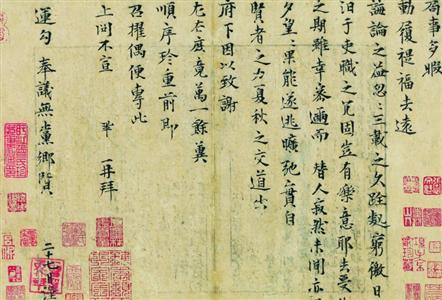 局事多暇
動履禔福去遠
誨論之益忽〻三載之久跧處窮徼日
汩于吏職之冗固豈有樂意耶去受
之期雖幸密邇而 替人寂然未聞亦
夕望〻果能遂逃曠弛實自
賢者之力夏秋之交道出
府下因以致謝
左右庶竟萬一餘冀
順序珍重前即
召擢偶便專此
上問不宣 鞏 再拜
運勾 奉議無黨鄉賢
二十七日謹